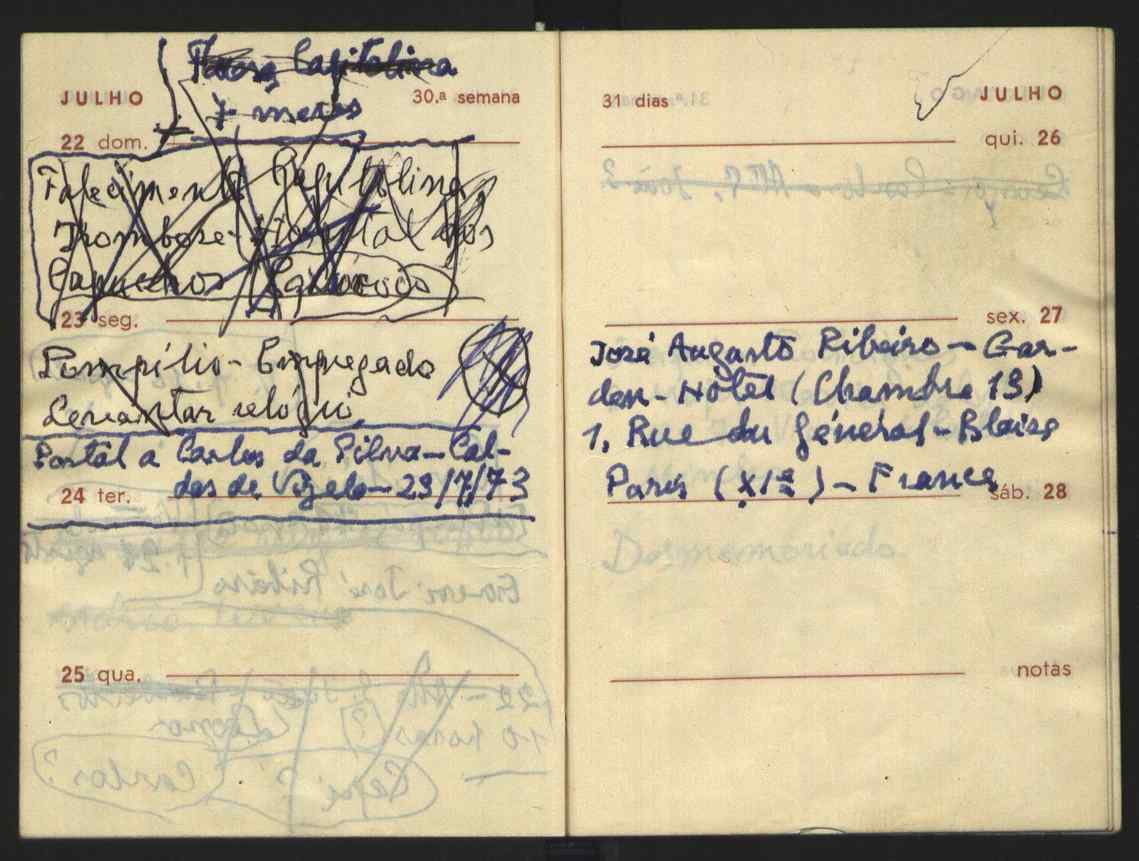 Capitolina
7 meses
JULHO 30.ª semana
22 dom.
Falecimento Capitolina
Trombose - Hospital dos
Capuchos
23 seg.
Pompílio - Empregado
Levantar relógio
Postal a Carlos da Silva - Cal-
24 ter. das de Vizela - 23/7/73
Escrevi José Ribeiro
25 qua.
22 -
10 horas (?) Leonor
Carlos?
31 dias JULHO
qui. 26
sex. 27
José Augusto Ribeiro - Gar-
den - Hôtel (Chambre 13)
1, Rue du Général - Blaise
Paris (XIe) - France
sáb. 28
Desmemoriado
notas